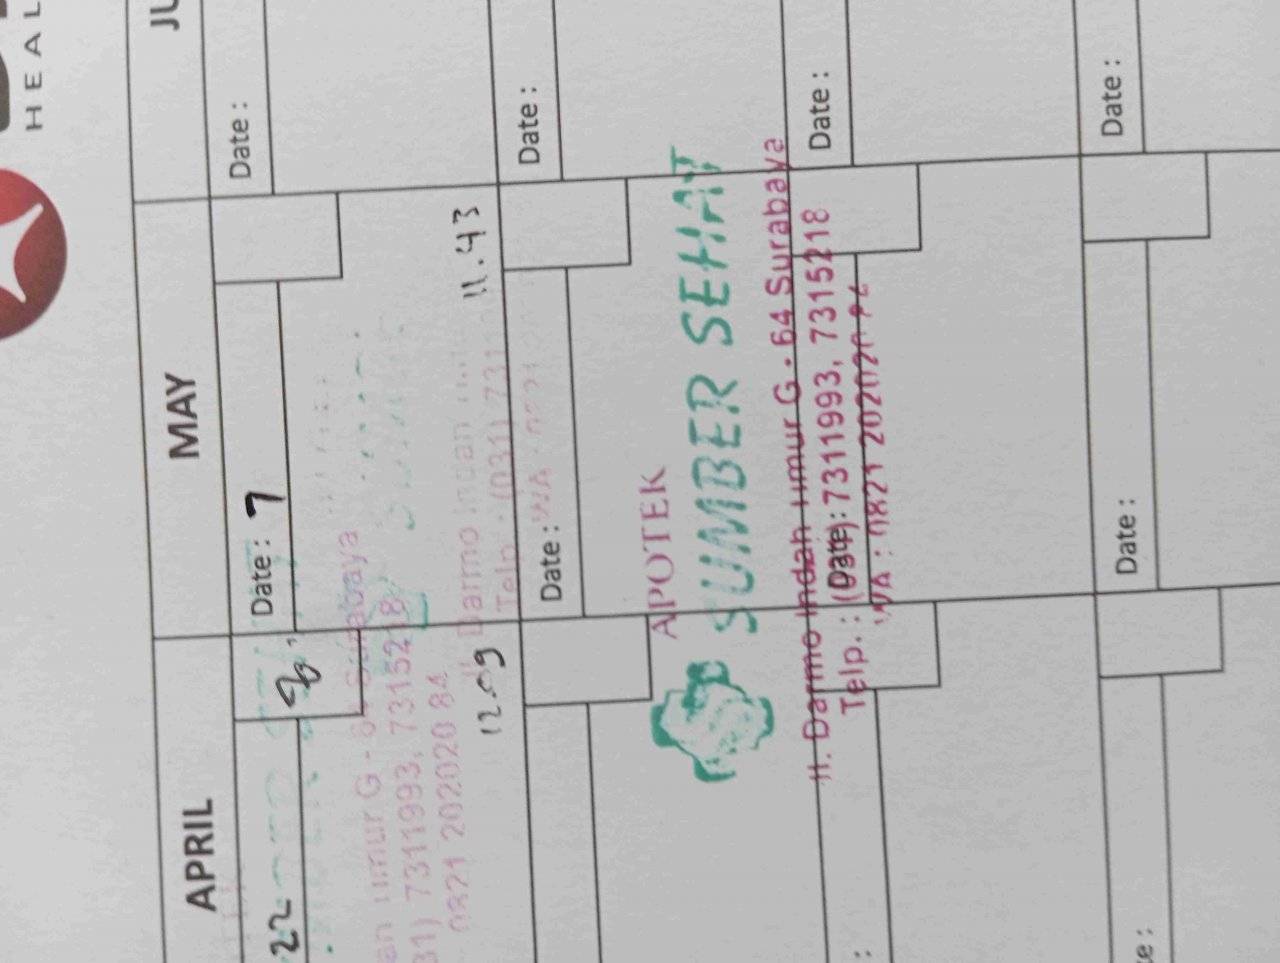 HEAL
APRIL
MAY
JU
22
Date: 7
Date:
an timur G - 64 Surabaya
31) 7311993, 7315218
0821 202020 84
12.09
Darmo Indah
Telp. : (031) 731
WA : 0821
11.43
Date:
Date:
APOTEK
SUMBER SEHAT
Jl. Darmo Indah timur G - 64 Surabaya
Telp. : (031) 7311993, 7315218
WA : 0821 202020 84
Date:
Date:
te:
Date:
Date: